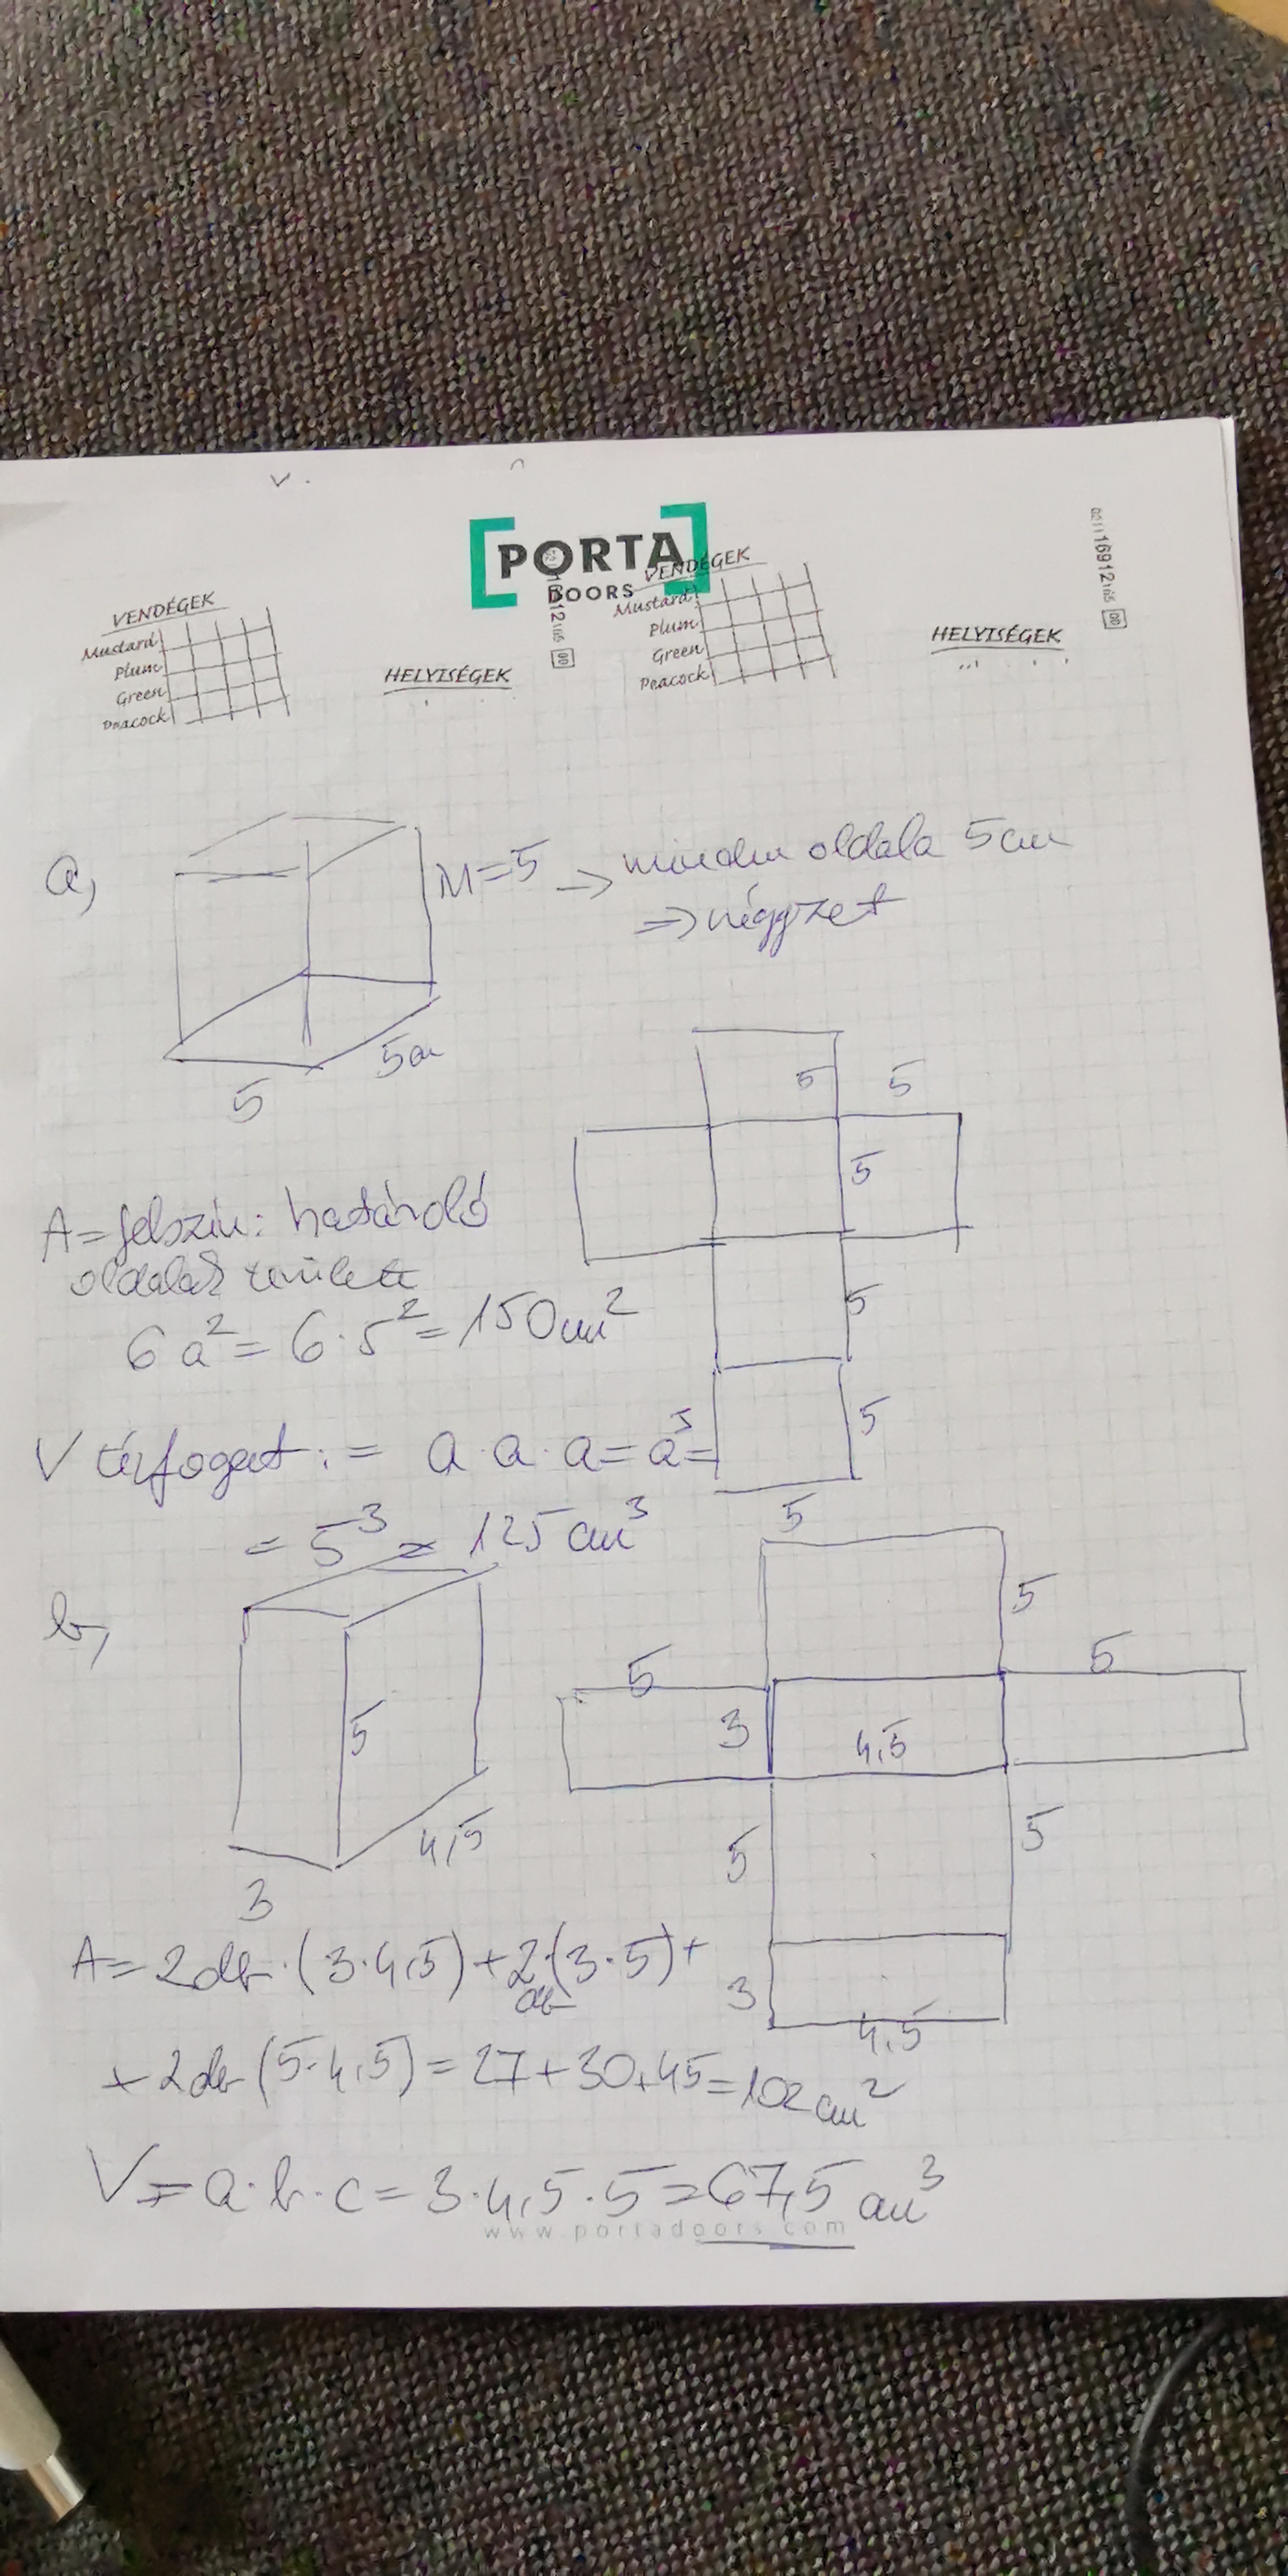 PORTA
DOORS
VENDÉGEK
Mustard
Plum
Green
Peacock
HELYISÉGEK
VENDÉGEK
Mustard
Plum
Green
Peacock
HELYISÉGEK
a,
M=5 → minden oldala 5cm
⇒ négyzet
5
5cm
5
5
5
5
5
5
A = felszín: határoló
oldalak területe
6a² = 6·5² = 150cm²
V térfogat: = a·a·a = a³ =
= 5³ = 125cm³
b,
5
4,5
3
5
5
5
3
4,5
5
5
3
4,5
A = 2db·(3·4,5)+2·(3·5)+
db
+2db(5·4,5) = 27+30+45 = 102cm²
V = a·b·c = 3·4,5·5 = 67,5 cm³
www.portadoors.com